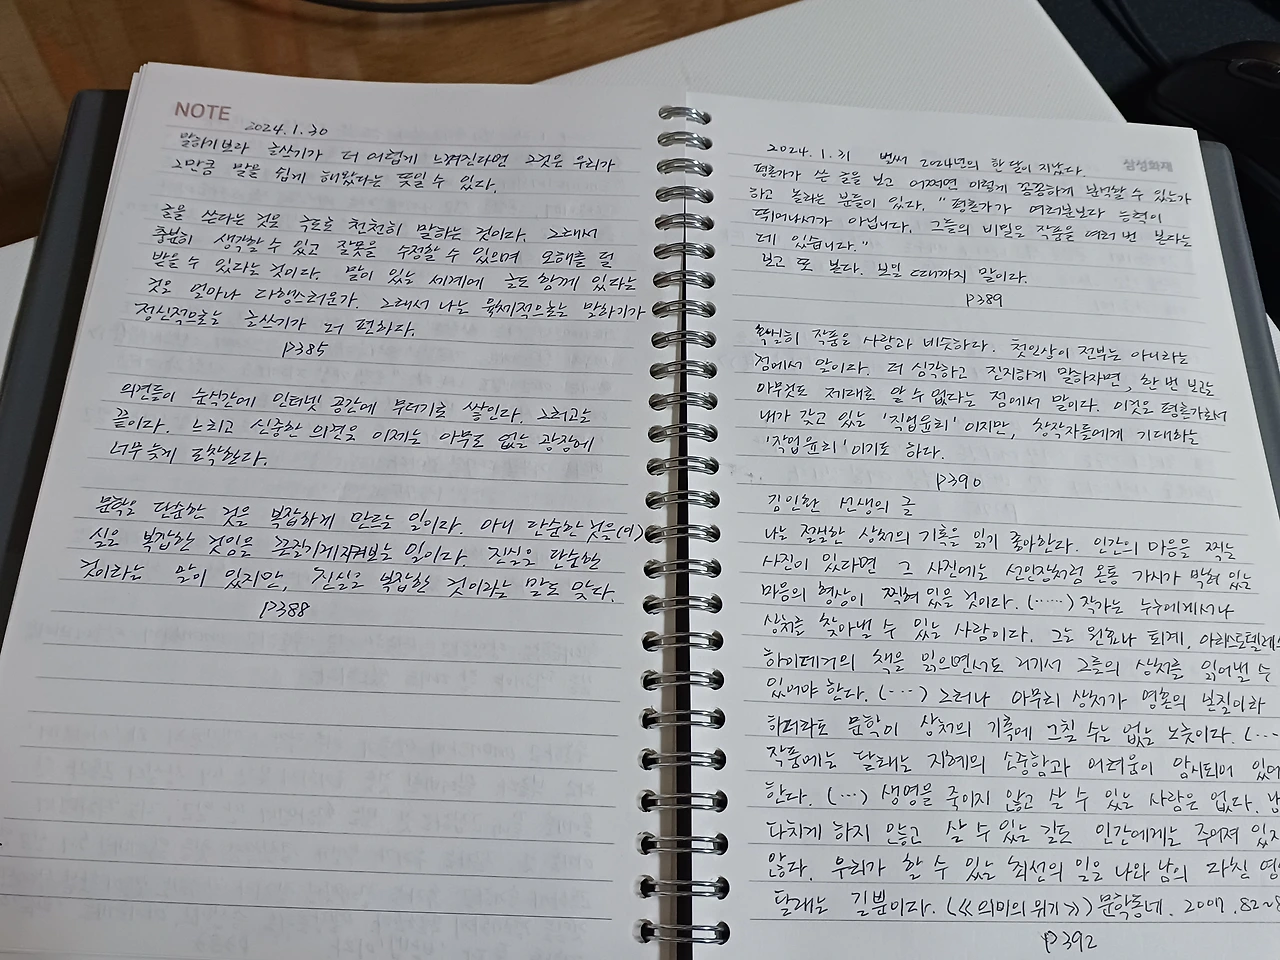 NOTE
2024.1.30
말하기보다 글쓰기가 더 어렵게 느껴진다면 그것은 우리가
그만큼 말을 쉽게 해왔다는 뜻일 수 있다.
글을 쓴다는 것은 극도로 천천히 말하는 것이다. 그래서
충분히 생각할 수 있고 잘못을 수정할 수 있으며 오해를 덜
받을 수 있다는 것이다. 말이 있는 세계에 글도 함께 있다는
것은 얼마나 다행스러운가. 그래서 나는 육체적으로는 말하기가
정신적으로는 글쓰기가 더 편하다.
P385
의견들이 순식간에 인터넷 공간에 무더기로 쌓인다. 그러고는
끝이다. 느리고 신중한 의견은 이제는 아무도 없는 광장에
너무 늦게 도착한다.
문학은 단순한 것을 복잡하게 만드는 일이다. 아니 단순한 것을(이)
실은 복잡한 것임을 끈질기게 지켜보는 일이다. 진실은 단순한
것이라는 말이 있지만, 진실은 복잡한 것이라는 말도 맞다.
P388
2024.1.31 벌써 2024년의 한 달이 지났다.
삼성화재
평론가가 쓴 글을 보고 어쩌면 이렇게 꼼꼼하게 분석할 수 있는가
하고 놀라는 분들이 있다. "평론가가 여러분보다 능력이
뛰어나서가 아닙니다. 그들의 비밀은 작품을 여러 번 본다는
데 있습니다."
보고 또 본다. 보일 때까지 말이다.
P389
확실히 작품은 사랑과 비슷하다. 첫인상이 전부는 아니라는
점에서 말이다. 더 심각하고 진지하게 말하자면, 한 번 보고는
아무것도 제대로 알 수 없다는 점에서 말이다. 이것은 평론가로서
내가 갖고 있는 '직업윤리'이지만, 창작자들에게 기대하는
'작업윤리'이기도 하다.
P390
김인환 선생의 글
나는 절실한 상처의 기록을 읽기 좋아한다. 인간의 마음을 찍는
사진이 있다면 그 사진에는 선인장처럼 온통 가시가 박혀 있는
마음의 형상이 찍혀 있을 것이다. (……) 작가는 누구에게서나
상처를 찾아낼 수 있는 사람이다. 그는 원효나 퇴계, 아리스토텔레스
하이데거의 책을 읽으면서도 거기서 그들의 상처를 읽어낼 수
있어야 한다. (…) 그러나 아무리 상처가 영혼의 본질이라
하더라도 문학이 상처의 기록에 그칠 수는 없는 노릇이다. (…
작품에는 달래는 지혜의 소중함과 어려움이 암시되어 있어
한다. (…) 생명을 죽이지 않고 살 수 있는 사람은 없다. 남
다치게 하지 않고 살 수 있는 길도 인간에게는 주어져 있지
않다. 우리가 할 수 있는 최선의 일은 나와 남의 다친 영
달래는 길뿐이다. (≪의미의 위기≫) 문학동네. 2007. 82~8
P392